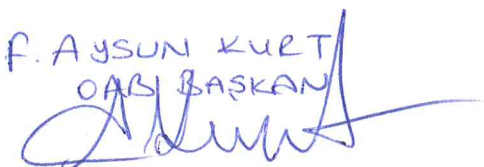 F. AYSUN KURT
OABJ BAŞKANI